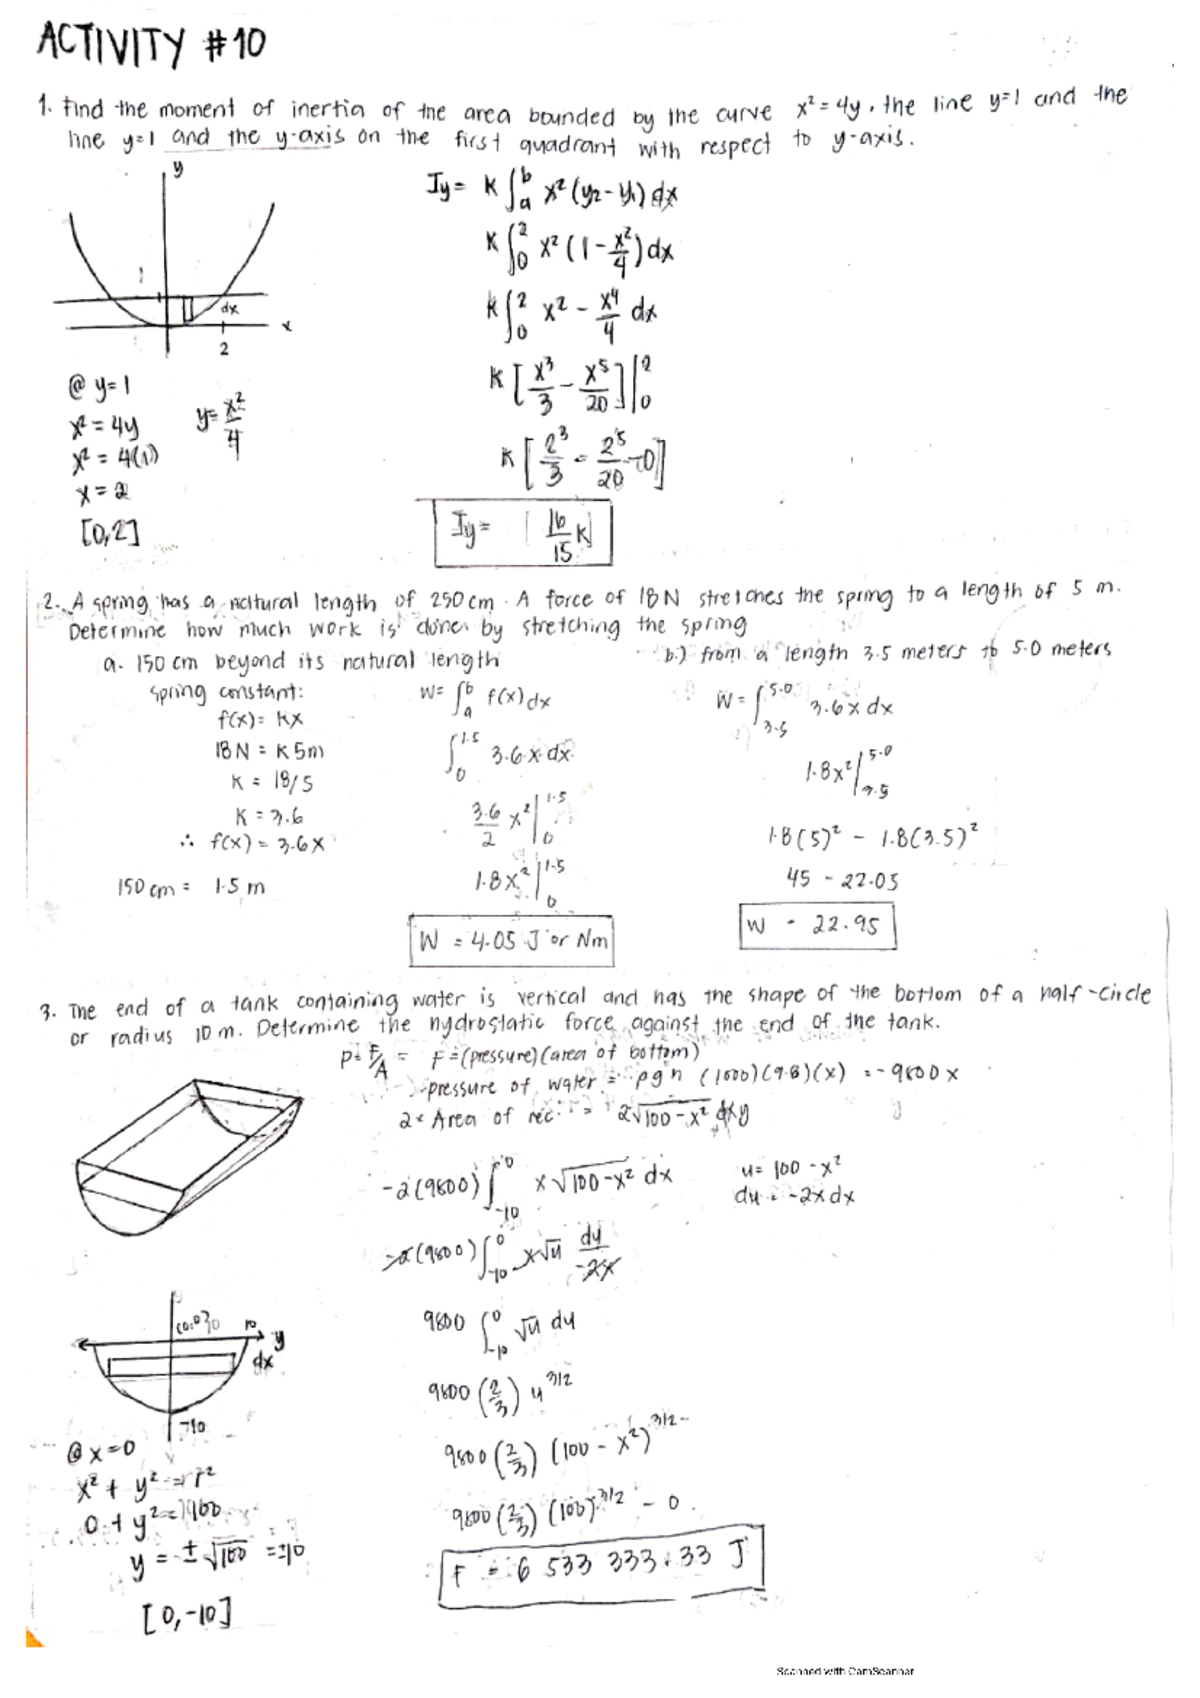 ACTIVITY #10
1. Find the moment of inertia of the area bounded by the curve x² = 4y, the line y=1 and the
line y=1 and the y-axis on the first quadrant with respect to y-axis.
y
1
dx
x
2
@ y=1
x² = 4y
x² = 4(1)
x = 2
[0,2]
y= x²/4
Iy= K ∫_a^b x² (y₂ - y₁) dx
K ∫_0^2 x² (1 - x²/4) dx
K ∫_0^2 x² - x⁴/4 dx
K [x³/3 - x⁵/20] |_0^2
K [2³/3 - 2⁵/20 - 0]
Iy= 16/15 K
2. A spring has a natural length of 250 cm. A force of 18N stretches the spring to a length of 5 m.
Determine how much work is done by stretching the spring
a. 150 cm beyond its natural length
spring constant:
f(x)= kx
18N = K 5m
K = 18/5
K = 3.6
∴ f(x) = 3.6x
150 cm = 1.5 m
W= ∫_a^b f(x) dx
∫_0^1.5 3.6x dx
3.6/2 x² |_0^1.5
1.8x² |_0^1.5
W = 4.05 J or Nm
b.) from a length 3.5 meters to 5.0 meters
W = ∫_3.5^5.0 3.6x dx
1.8x² |_3.5^5.0
1.8(5)² - 1.8(3.5)²
45 - 22.05
W = 22.95
3. The end of a tank containing water is vertical and has the shape of the bottom of a half-circle
or radius 10 m. Determine the hydrostatic force against the end of the tank.
P= F/A = F = (pressure)(area of bottom)
pressure of water = ρgh (1000)(9.8)(x) = -9800x
2x Area of rec. = 2√100-x² dxy
-2(9800) ∫_-10^0 x√100-x² dx
u= 100 - x²
du = -2x dx
-2(9800) ∫_-10^0 x√u du/-2x
9800 ∫_-10^0 √u du
9800 (2/3) u^3/2
9800 (2/3) (100 - x²)^3/2
9800 (2/3) (100)^3/2 - 0
F = 6 533 333.33 J
10
y
dx
-10
@ x=0
x² + y² = r²
0 + y² = 100
y = ±√100 = ±10
[0,-10]
Scanned with CamScanner